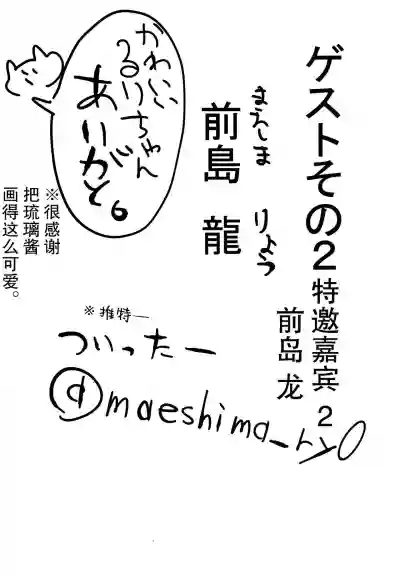 ゲストその2
特邀嘉宾 2
前岛 龙
まえしま りょう
前島 龍
かわいい
るりちゃん
ありがと。
※很感谢
把琉璃酱
画得这么可爱。
※推特
ついったー
@maeshima_ryo